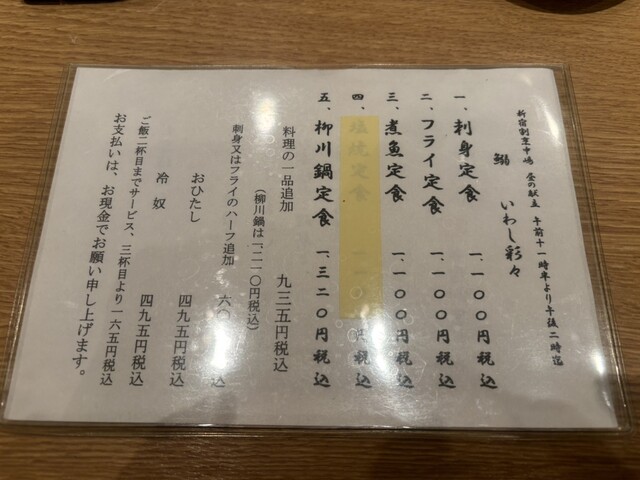 新宿割烹中嶋 昼の献立 午前十一時半より午後二時迄
鰯 いわし彩々
一、刺身定食 一、一〇〇円税込
二、フライ定食 一、一〇〇円税込
三、煮魚定食 一、一〇〇円税込
四、塩焼定食 一、一〇〇円税込
五、柳川鍋定食 一、三二〇円税込
料理の一品追加 九三五円税込
(柳川鍋は一、二一〇円税込)
刺身又はフライのハーフ追加 六〇 税込
おひたし 四九五円税込
冷奴 四九五円税込
ご飯二杯目までサービス、三杯目より一六五円税込
お支払いは、お現金でお願い申し上げます。